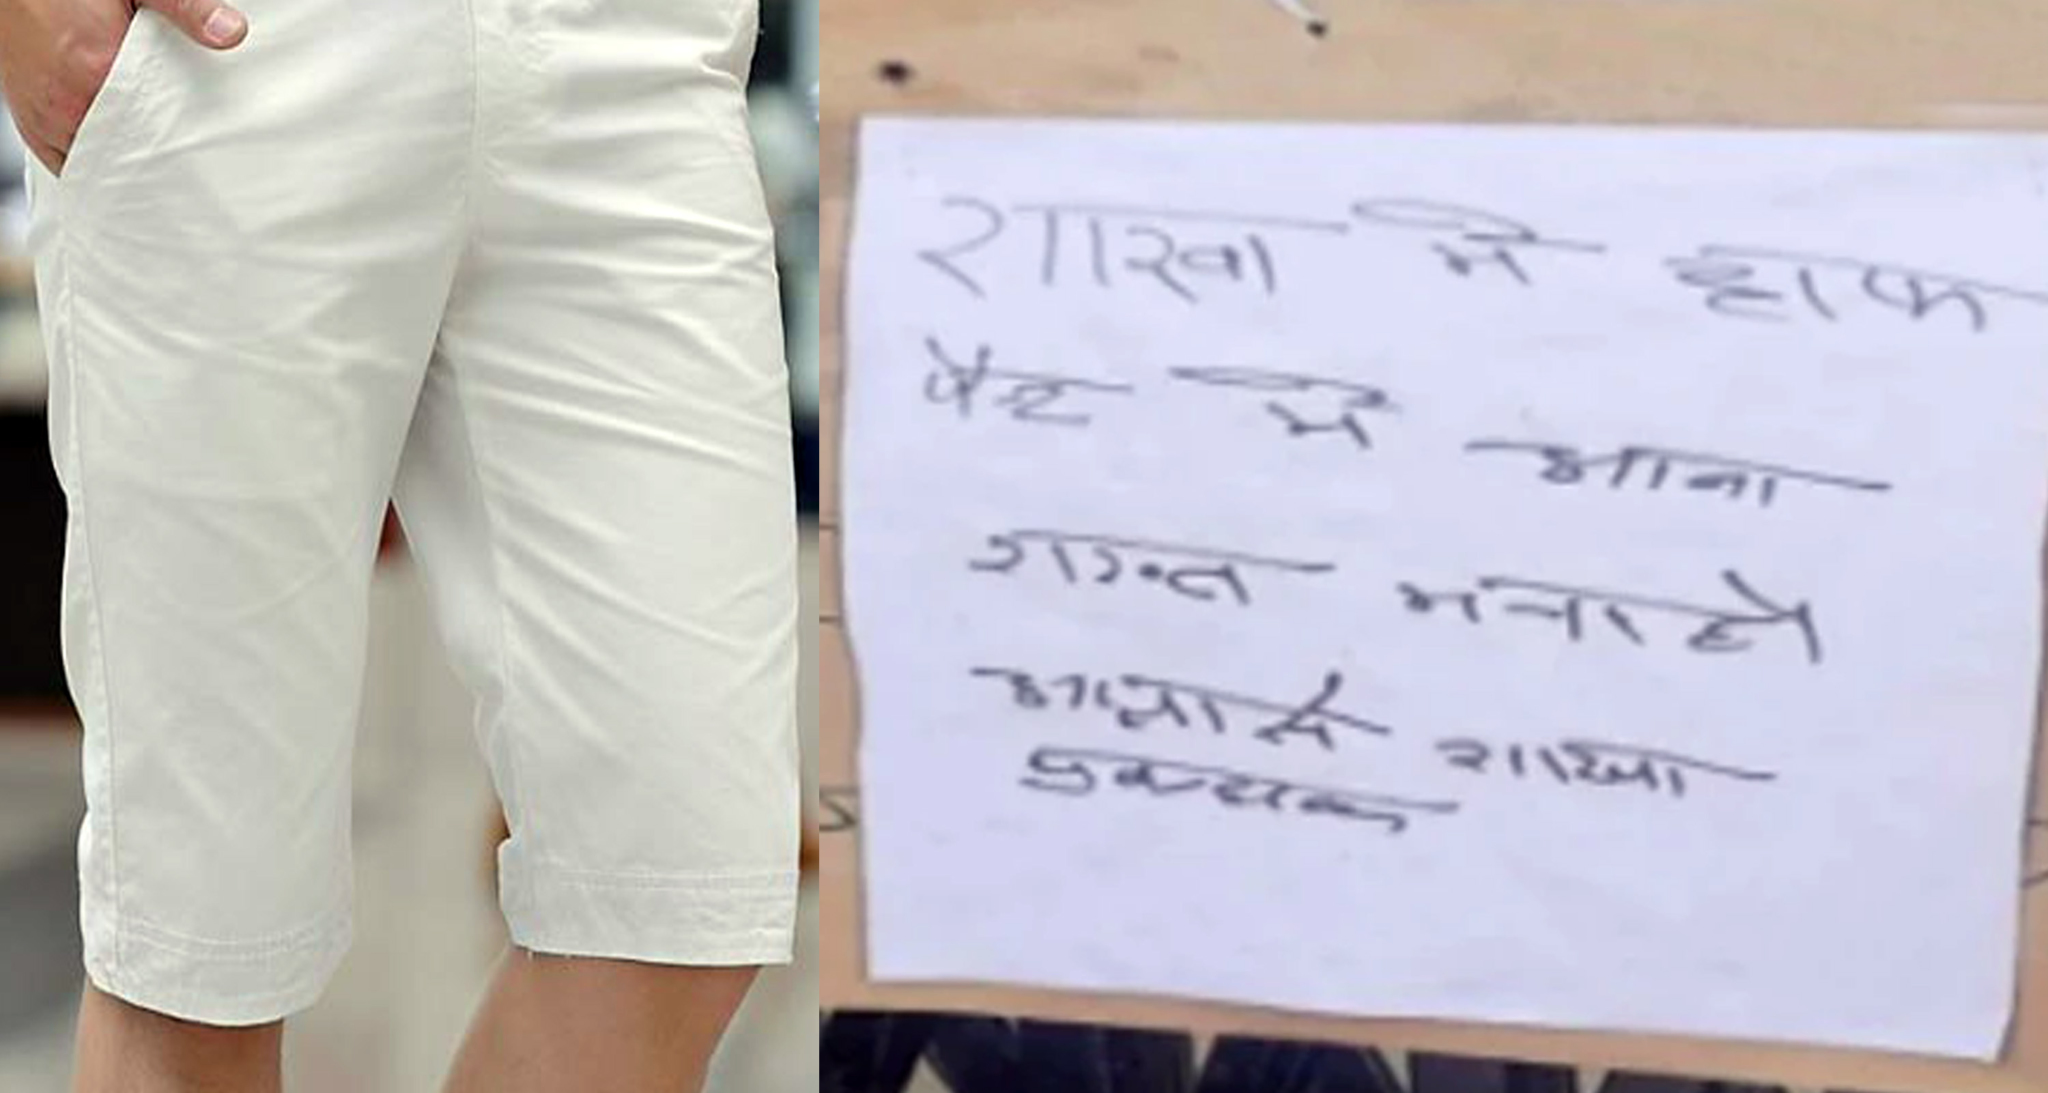 शाखा में हाफ
पेन्ट में आना
शख्त मना है
आज्ञा से शाखा
प्रबन्धक